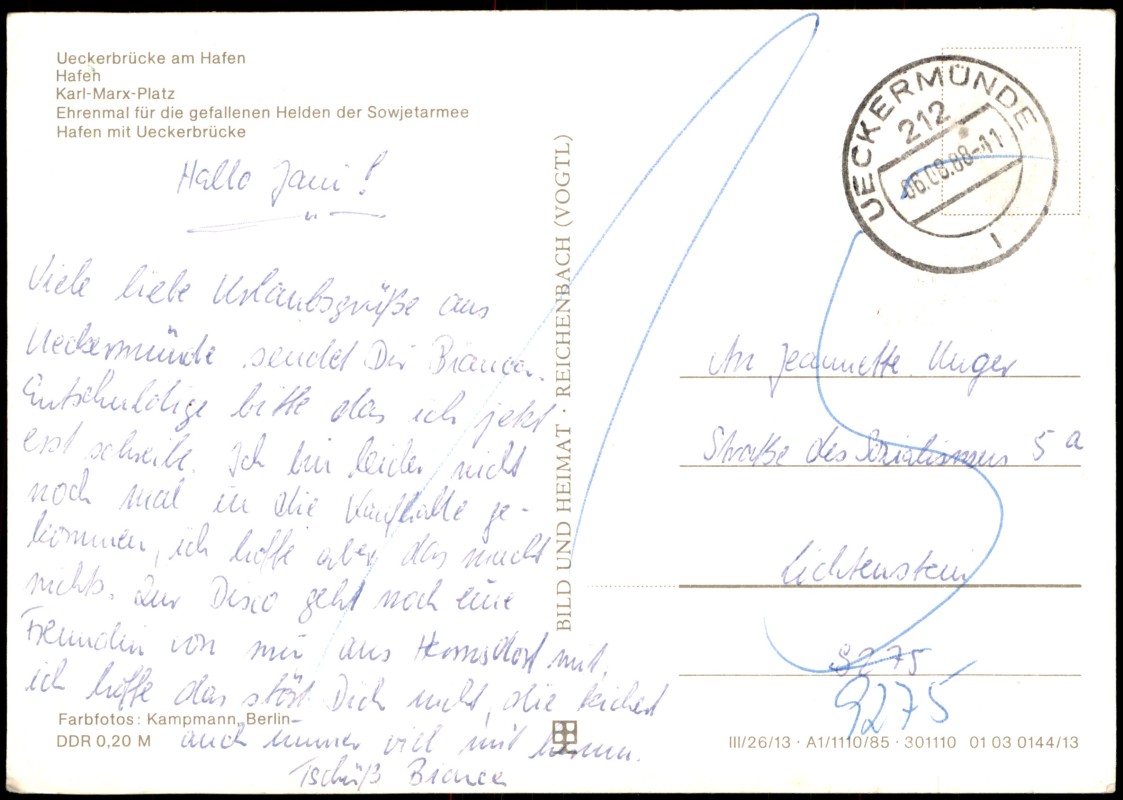 Ueckerbrücke am Hafen
Hafen
Karl-Marx-Platz
Ehrenmal für die gefallenen Helden der Sowjetarmee
Hafen mit Ueckerbrücke
Hallo Jani!
Viele liebe Urlaubsgrüße aus
Ueckermünde sendet Dir Bianca.
Entschuldige bitte das ich jetzt
erst schreibe. Ich bin leider nicht
noch mal in die Kaufhalle ge-
kommen, ich hoffe aber das macht
nichts. Zur Disco geht noch eine
Freundin von mir aus Hermsdorf mit,
ich hoffe das stört Dich nicht, die
auch immer viel mit
Tschüß Bianca
Farbfotos: Kampmann, Berlin
DDR 0,20 M
BILD UND HEIMAT · REICHENBACH (VOGTL)
UECKERMÜNDE
212
06.08.88-11
An Jeannette Unger
Straße des Sozialismus 5a
Lichtenstein
9275
9275
III/26/13 · A1/1110/85 · 301110 01 03 0144/13